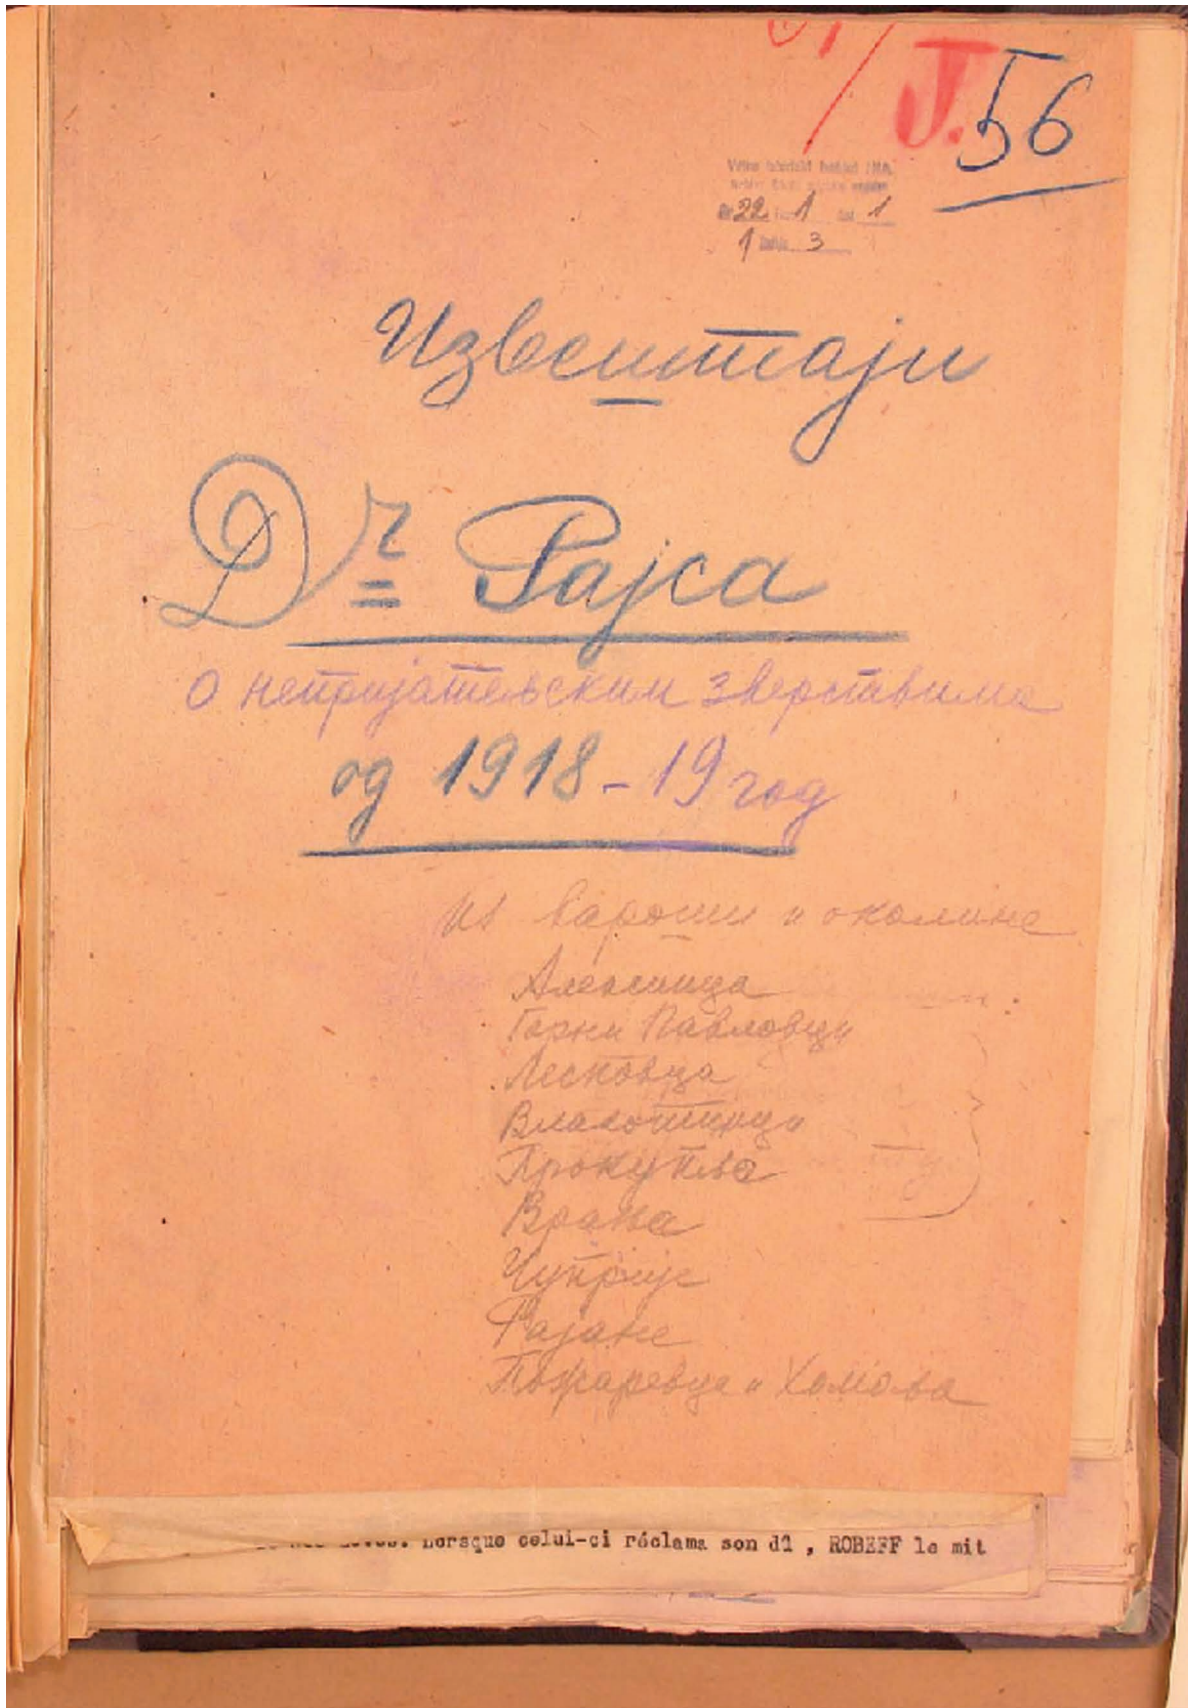 J. 56
22 1 1
1 3
Извештаји
Dr Рајса
о непријатељским зверствима
од 1918-19 год
из вароши и околине
Алексинца
Горњи Павловци
Лесковца
Власотинци
Прокупља
Врања
Ћуприје
Рајане
Пожаревца и Хомоља
Lorsque celui-ci réclama son dû , ROBEFF le mit